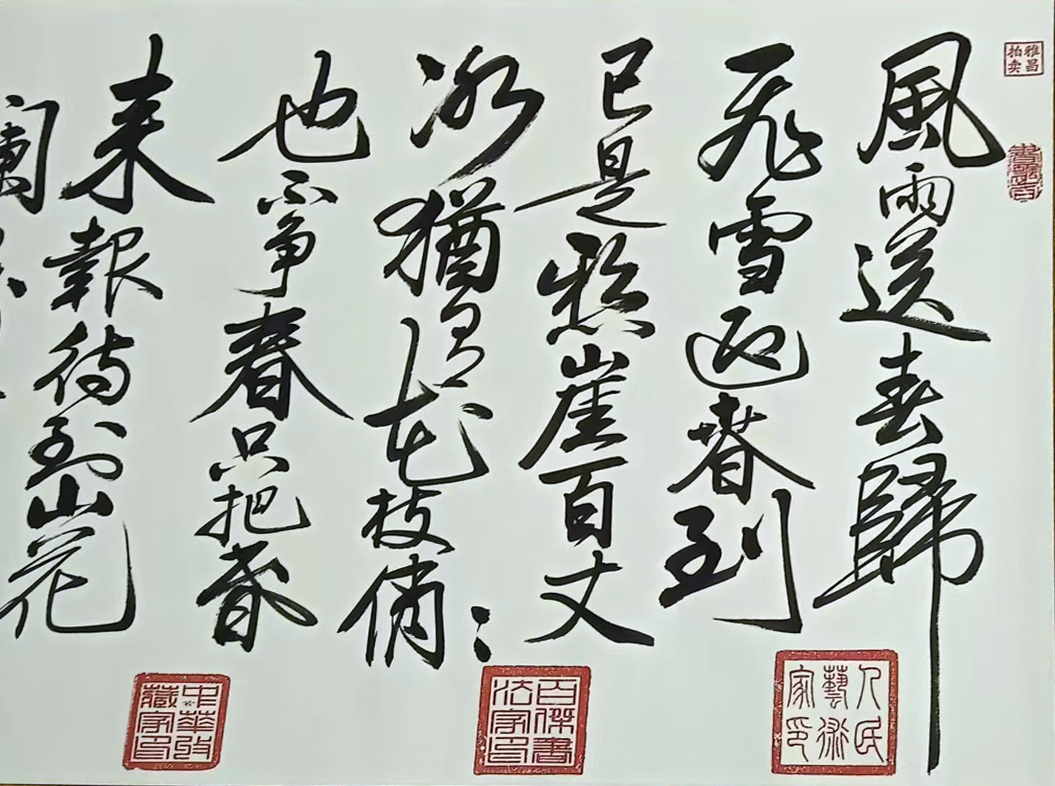 雅昌拍卖
風雨送春歸
飛雪迎春到
已是懸崖百丈
冰猶有花枝俏々
也不争春只把春
来報待到山花
人民藝術家印
百傑書法家印
中華收藏家印